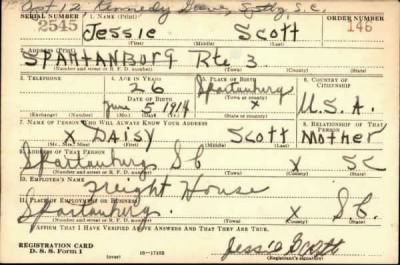 Apt 12, Kennedy Sptbg, S.C.
SERIAL NUMBER 1. NAME (Print) ORDER NUMBER
2545 Jessie Scott 146
(First) (Middle) (Last)
2. ADDRESS (Print)
SPARTANBURG Rte 3
(Number and street or R. F. D. number) (Town) (County) (State)
3. TELEPHONE 4. AGE IN YEARS 5. PLACE OF BIRTH 6. COUNTRY OF CITIZENSHIP
26 Spartanburg
DATE OF BIRTH (Town or county)
June 5 1914 X U.S.A.
(Exchange) (Number) (Mo.) (Day) (Yr.) (State or country)
7. NAME OF PERSON WHO WILL ALWAYS KNOW YOUR ADDRESS 8. RELATIONSHIP OF THAT PERSON
X DAISY Scott Mother
(Mr., Mrs., Miss) (First) (Middle) (Last)
9. ADDRESS OF THAT PERSON
Spartanburg SC X SC
(Number and street or R. F. D. number) (Town) (County) (State)
10. EMPLOYER'S NAME
Freight House
11. PLACE OF EMPLOYMENT OR BUSINESS
Spartanburg. X S.C.
(Number and street or R. F. D. number) (Town) (County) (State)
I AFFIRM THAT I HAVE VERIFIED ABOVE ANSWERS AND THAT THEY ARE TRUE.
REGISTRATION CARD
D. S. S. Form 1 16—17105 Jessie Scott
(Registrant's signature)